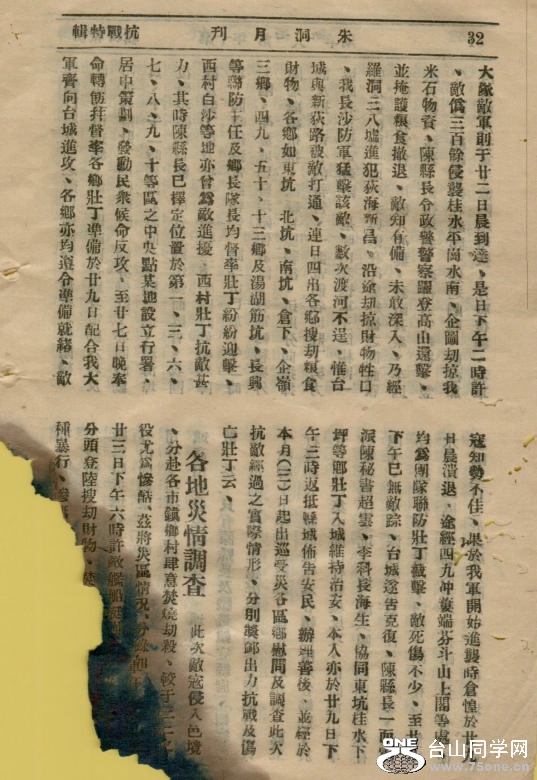 32
朱洞月刊
抗戰特輯
大緣敵軍則于廿二日晨到達、是日下午二時許
、敵僞三百餘侵襲桂水平崗水南、企圖劫掠我
米石物資、陳縣長令政警警察踞登高山還擊、
並掩護粮食撤退、敵知有備、未敢深入、乃經
羅洞三八墟進犯荻海新昌、沿途劫掠財物牲口
、我長沙防軍猛擊該敵、數次渡河不逞、惟台
城與新荻路被敵打通、連日四出各鄉搜劫粮食
財物、各鄉如東坑、北坑、南坑、倉下、企嶺
三鄉、四九、五十、十三鄉及湯湖筋坑、長興
等聯防主任及鄉長隊長均督率壯丁紛紛迎擊、
西村白沙等地亦曾爲敵進擾、西村壯丁抗敵甚
力、其時陳縣長已擇定位置於第一、三、六、
七、八、九、十等區之中央點某地設立行署、
居中策劃、發動民衆候命反攻、至廿七日晚奉
命轉飭幷督率各鄉壯丁準備於廿九日配合我大
軍齊向台城進攻、各鄉亦均遵令準備就緒、敵
寇知勢不佳、果於我軍開始進襲時倉惶於廿
日晨潰退、途經四九冲蔞端芬斗山上閣等處
均爲團隊聯防壯丁截擊、敵死傷不少、至廿
下午已無敵踪、台城遂吿克復、陳縣長一面
派陳秘書超雲、李科長海生、協同東坑桂水下
坪等鄉壯丁入城維持治安、本人亦於廿九日下
午三時返抵縣城佈告安民、辦理善後、並經於
本月（三）日起出巡受災各區鄉慰問及調查此次
抗敵經過之實際情形、分別獎䘏出力抗戰及傷
亡壯丁云、
各地災情調查
此次敵寇侵入邑境
、分赴各市鎭鄉村肆意焚燒劫殺、較于三二之
役尤爲慘酷、茲將災區情況、分錄如下
廿三日下午六時許敵艦船
分頭登陸搜劫財物、
種暴行、
ONE
台山同学网
www.75one.com